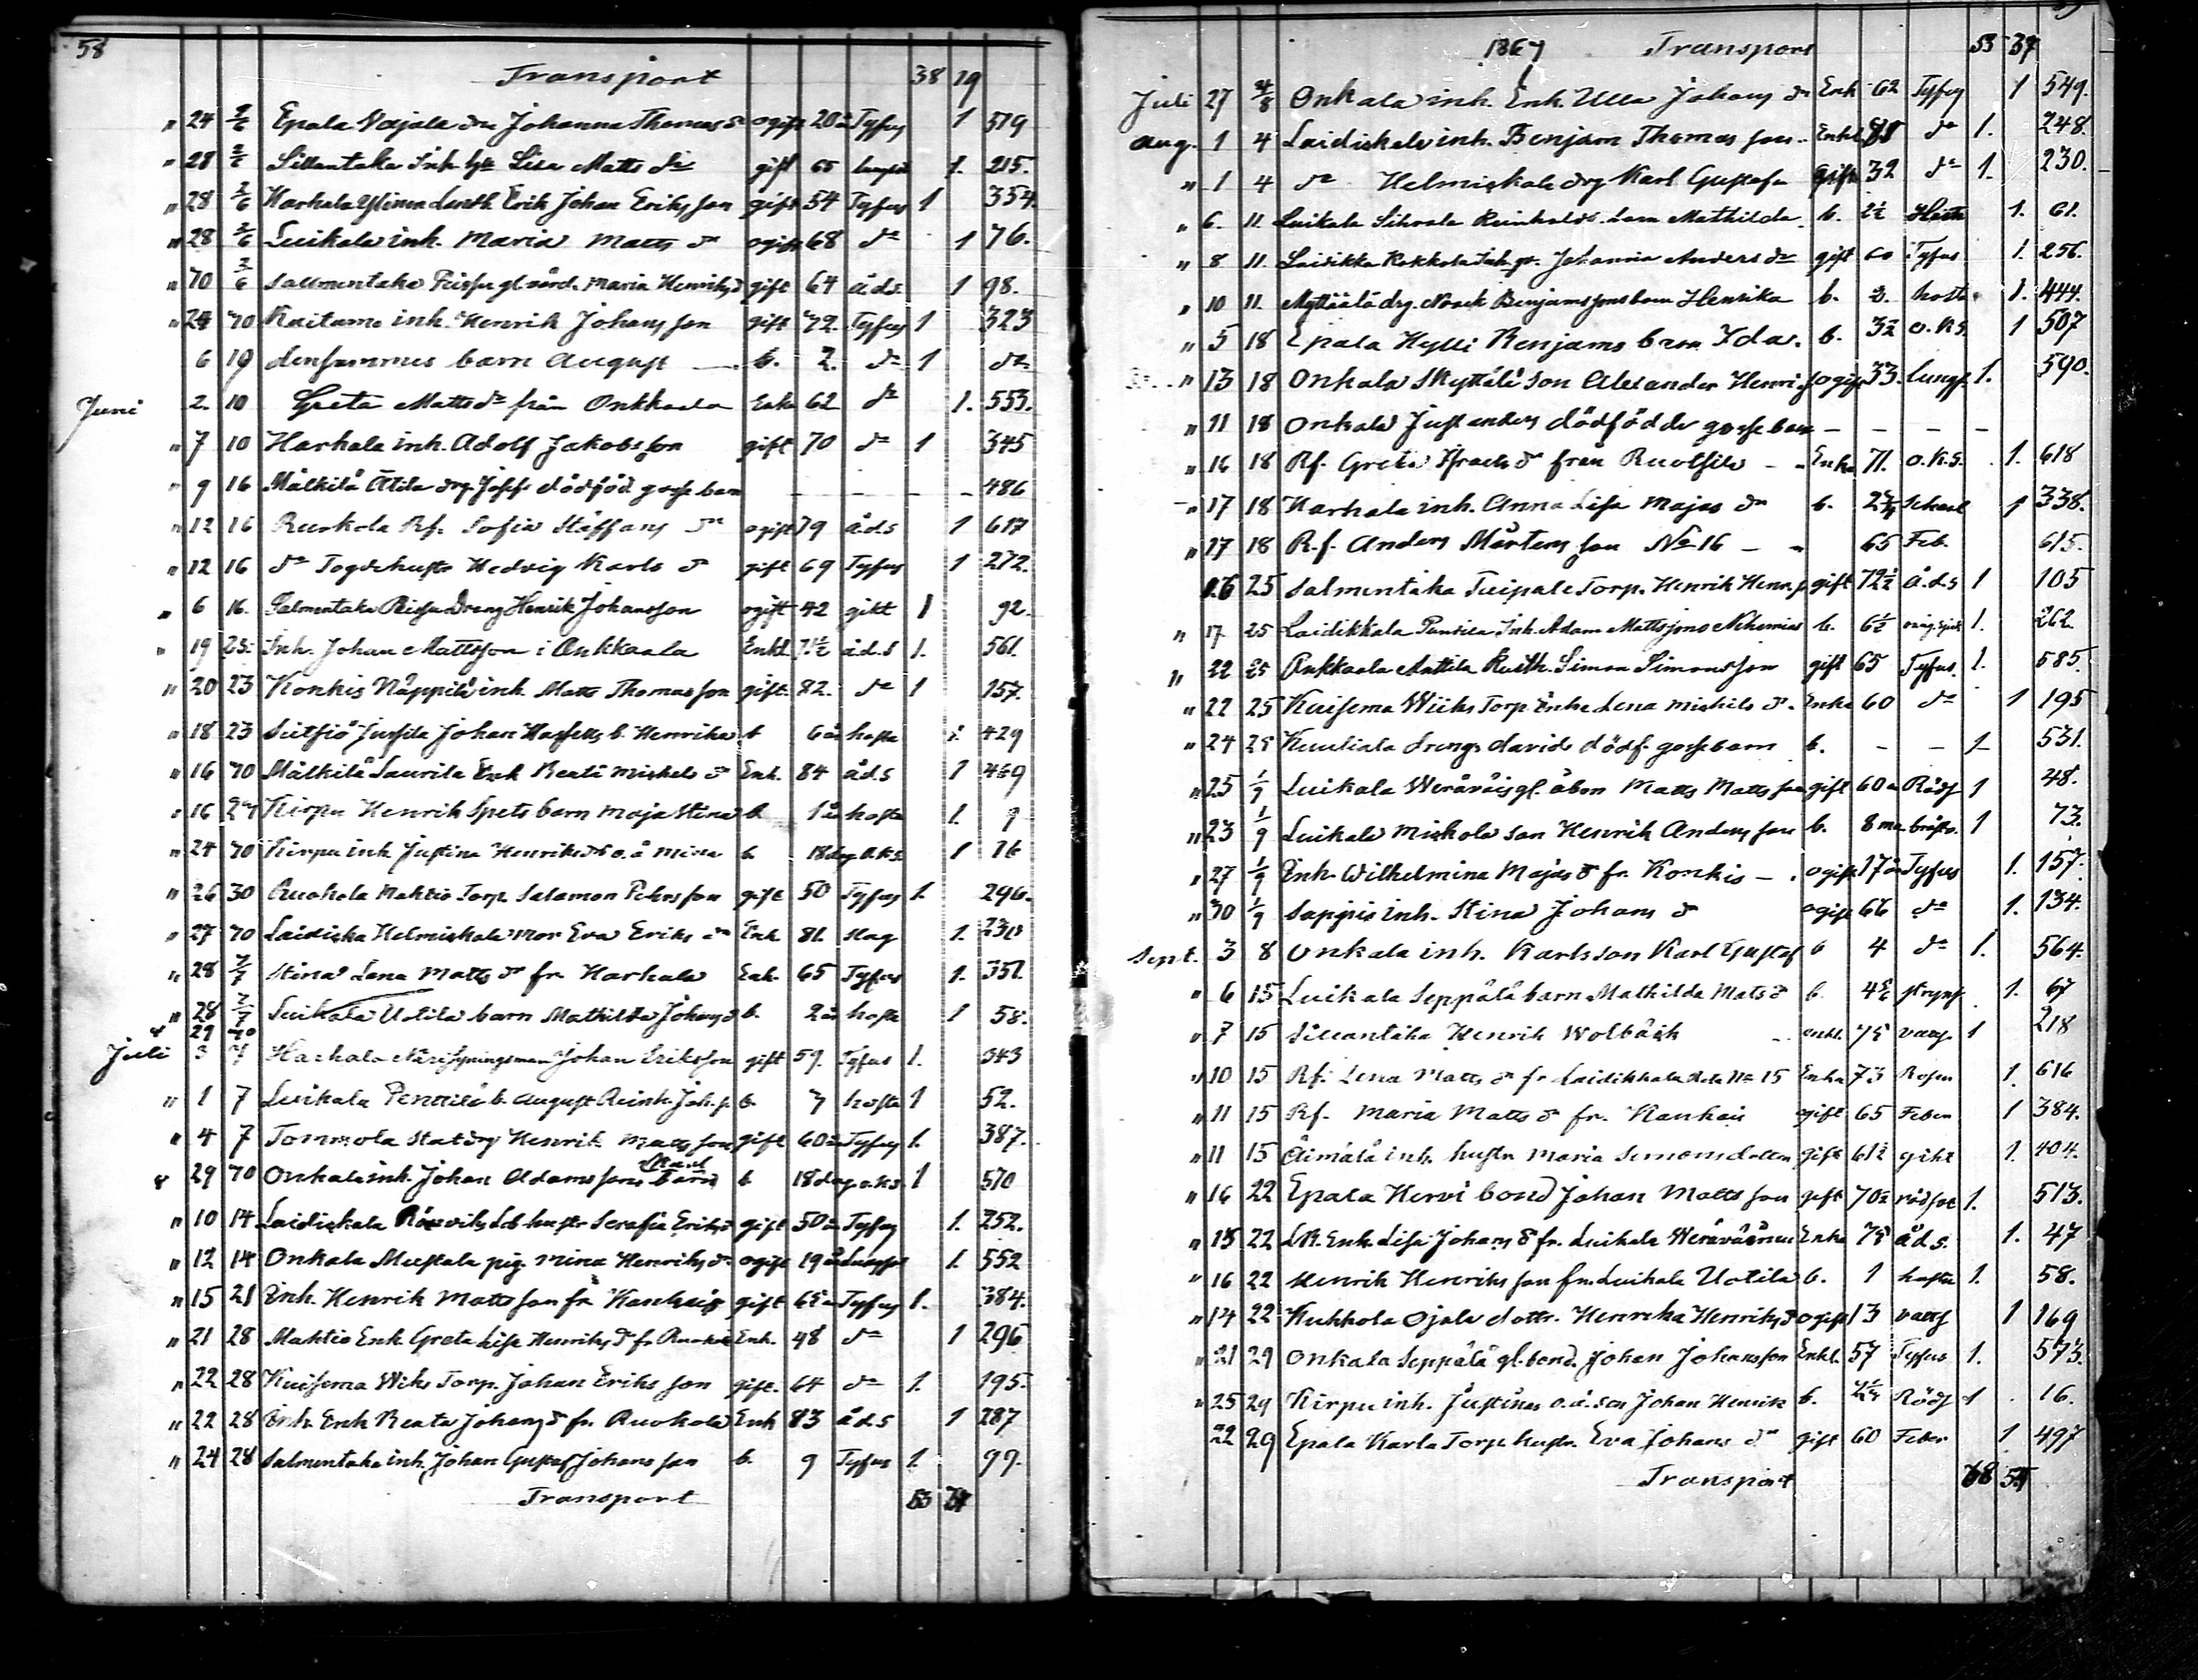 58
Transport 38 19
" 24 2/6 Epala Wäjala dra Johanna Thomas dr ogift 20 år Tyfus 1 519
" 28 2/6 Sillantaka Inh. Lisa Matts dr gift 65 1. 215.
" 28 2/6 Harhala Ylinen Erik Johan Eriksson gift 54 Tyfus 1 354.
" 28 2/6 Luikala inh. Maria Matts dr ogift 68 do 1 76.
" 30 2/6 Salmentaka Maria Henriks dr gift 64 åds 1 98.
" 24 30 Raitamo inh. Henrik Johansson gift 72. Tyfus 1 323
6 19 densammes barn August b. 2. do 1 do
Juni 2. 10 Greta Matts dr från Onkkaala Enka 62 do 1. 553.
" 7 10 Harhala inh. Adolf Jakobsson gift 70 do 1 345
" 9 16 Mälkilä Ätila drg. Josefs dödföd gosse barn – – – – 486
" 12 16 Ruokola Rf. Sofia Staffans dr ogift 79 åds 1 617
" 12 16 do Hedvig Karls dr gift 69 Tyfus 1 272.
" 6 16. Salmentaka Dreng Henrik Johansson ogift 42 gikt 1 92.
" 19 23. Inh. Johan Mattsson i Onkkaala Enkl. 71½ åd.s 1. 561.
" 20 23 Konkis Näppilä inh. Matts Thomasson gift. 82. do 1 157.
" 18 23 Jussila Johan b. Henrika b 6 år hosta 1. 429
" 16 30 Mälkilä Laurila Enk Beata Mickels dr Enk. 84 åd.s 1 469
" 16 27 Kirpu Henrik Spets barn Maja Stina b. 1 år hosta 1. 9
" 24 30 Kirpu inh. Justina Henriks dr o.ä Mina b. 18 dag o.k.s. 1 16
" 26 30 Ruokola Mahtio Torp. Salamon Pehrsson gift 50 Tyfus 1. 296.
" 27 30 Laidiska Helmiskala Mor Eva Eriks dr Enk. 81. slag 1. 230
" 28 7/7 Stina Lena Matts dr fr Harhala Enk. 65 Tyfus 1. 351.
" 28 7/7 Luikala Uotila barn Mathilda Johans dr b. 2 år hosta 1 58.
Juli 3 7 Harhala Johan Eriksson gift 59. Tyfus 1. 343
" 1 7 Luikala Penttilä b. August Reinh. Joh. s. b. 7 hosta 1 52.
" 4 7 Tommola Statdrg Henrik Mattsson gift 60 år Tyfus 1. 387.
" 29 30 Onkala inh. Johan Adamssons barn Karl b 18 dag o.k.s 1 570
" 10 14 Laidiskala hustr Serafia Eriks dr gift 50 år Tyfus 1. 252.
" 12 14 Onkala Mustala pig. Mina Henriks dr ogift 19 år Lungsot 1. 552
" 15 21 Inh. Henrik Mattsson fr Kankais gift 65 år Tyfus 1. 384.
" 21 28 Mahtio Enk. Greta Lisa Henriks dr fr. Ruokola Enk. 48 do 1 296
" 22 28 Kuisema Wiks Torp. Johan Eriksson gift. 64 do 1. 195.
" 22 28 Inh. Enk Beata Johans dr fr. Ruokola Enk 83 åd.s 1 287
" 24 28 Salmentaka inh. Johan Gustaf Johansson b. 9 Tyfus 1. 99.
Transport 53 37
1867 Transport 53 37
Juli 27 4/8 Onkala inh. Enk. Ulla Johans dr Enk 62 Tyfus 1 549.
Aug. 1 4 Laidiskala inh. Benjam Thomasson Enkl 88 do 1. 248.
" 1 4 do Helmiskala drg Karl Gustafs gift 32 do 1. 230.
" 6. 11. Luikala Sihvola Reinholds barn Mathilda. b. 2½ Hosta 1. 61.
" 8 11. Laidikka Kokkola Inh. Johanna Anders dr gift 60 Tyfus 1. 256.
" 10 11. Myttäälä drg. Noack Benjamssons barn Henrika b. 2. hosta 1. 444.
" 5 18 Epala Hylli Benjams barn Ida. b. 3½ o.k.s. 1 507
" 13 18 Onkala Skyttälä son Alexander Henr. s. ogift 33. lungs. 1. 590.
" 11 18 Onkala Just anders dödfödde gosse barn – – – –
" 16 18 Rf. Greta Isacks dr från Ruotsila Enka 71. o.k.s. 1. 618
" 17 18 Harhala inh. Anna Lisa Majas dr b. Scharl 1 338.
" 17 18 R.f. Anders Mårtensson No 16 65 Feb. 615.
16 25 Salmentaka Tuipale Torp. Henrik Henr. s. gift 72½ å.d.s 1 105
" 17. 25 Laidikkala Inh. Adam Mattssons Nehemias b. 6½ 1. 262.
" 22 25 Onkkaala Anttila Simon Simonsson gift 65 Tyfus. 1. 585.
" 22 25 Kuisema Wiiks Torp Enka Lena Mickels dr. Enka 60 do 1 195
" 24 25 Kuuliala drengs Davids dödf. gosse barn b. – – 1 – 531.
" 25 1/9 Luikala gl. åbon Matts Mattsson gift 60 år Rödf 1 48.
" 23 1/9 Luikala Miekola son Henrik Andersson b. 8 mån. bröstv. 1 73.
" 27 1/9 Inh. Wilhelmina Majas dr fr. Konkis ogift 17 år Tyfus 1. 157.
" 30 1/9 Sappis inh. Stina Johans dr ogift 66 do 1. 134.
Sept. 3 8 Onkala inh. Karls son Karl Gustaf b 4 do 1. 564.
" 6 15 Luikala Seppälä barn Mathilda Mats dr b. 1. 67
" 7 15 Sillantaka Henrik Wolbäck enkl. 75 1 218
" 10 15 Rf. Lena Matts dr fr Laidikkala No 15 Enka 73 Rosen 1. 616
" 11 15 Rf. Maria Matts dr fr. Kankais ogift 65 Feber 1 384.
" 11 15 Äimälä inh. hustr Maria Simonsdotter gift 61½ gikt 1. 404.
" 16 22 Epala Hervi bond Johan Mattsson gift 70 år rödsot 1. 513.
" 15 22 Enk. Lisa Johans dr fr. Luikala Enka 75 åd.s. 1. 47
" 16 22 Henrik Henriksson fr. Luikala Uotila b. 1 hosta 1. 58.
" 14 22 Kukkola Ojala dottr. Henrika Henriks dr ogift 13 vatts 1 169
" 21 29 Onkala Seppälä gl. bond. Johan Johansson Enkl. 57 Tyfus 1. 573.
" 25 29 Kirpu inh. Justinas o.ä. son Johan Henrik b. Rödf 1 16.
22 29 Epala Karla Torp. hustr. Eva Johans dr gift 60 Feber 1 497
Transport 68 54